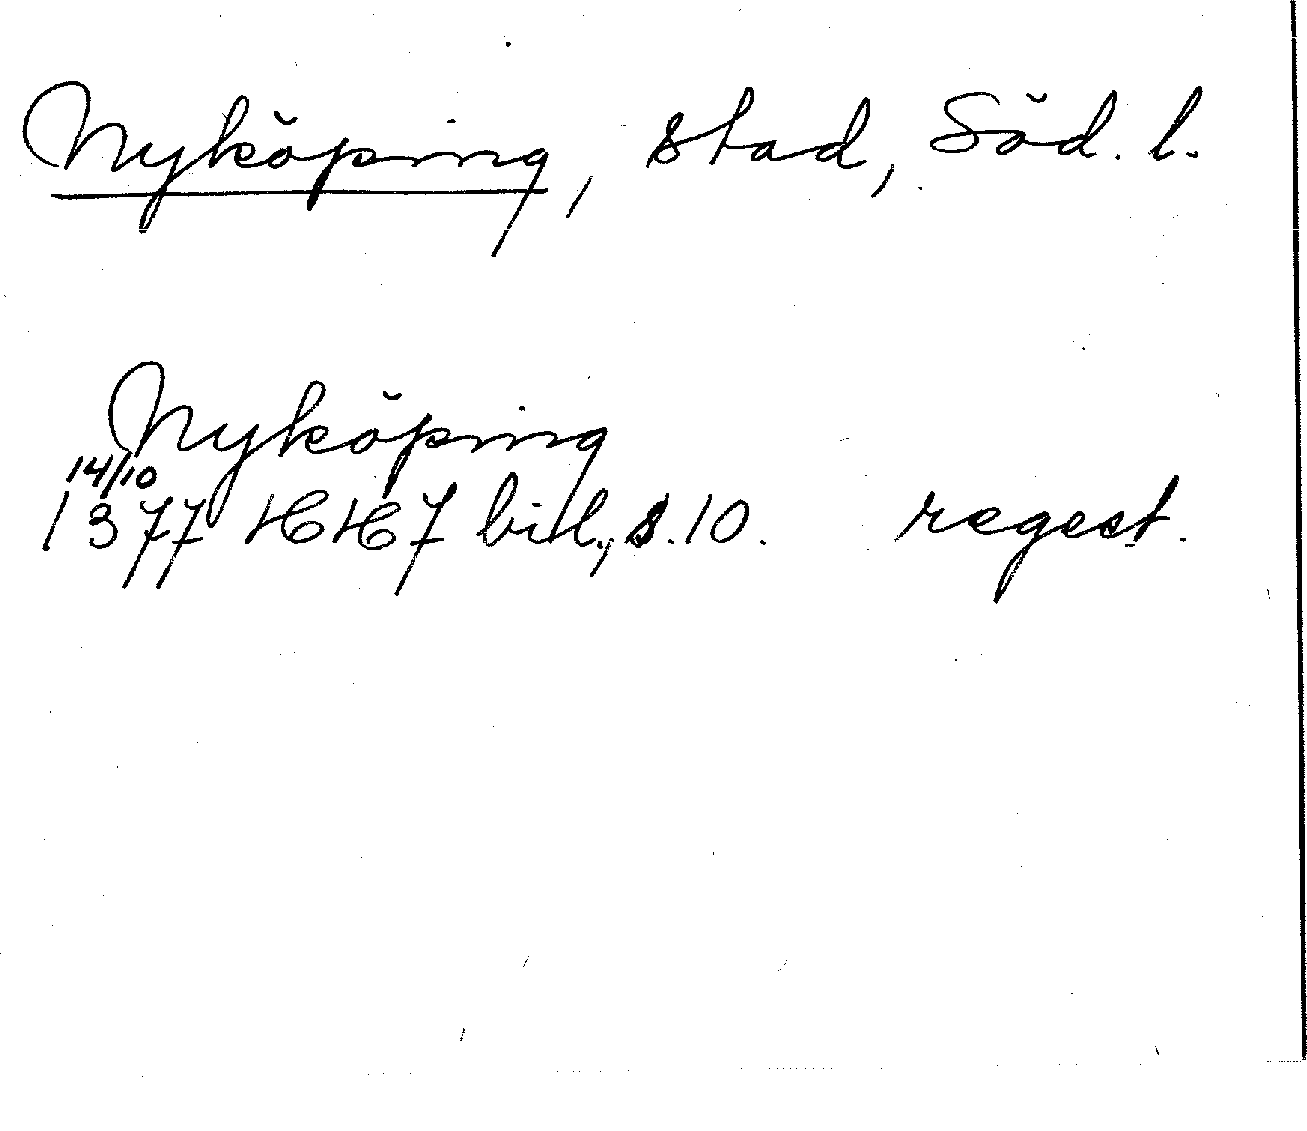 Nyköping, stad, Söd. l.
Nyköping
14/10
1377 HH 7 bil., s. 10. regest.